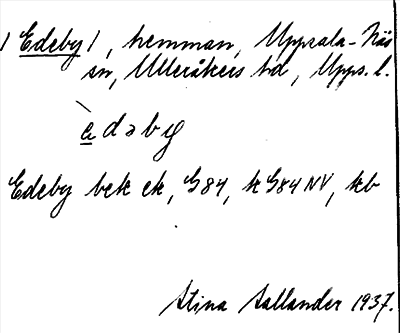 / Edeby /, hemman, Uppsala-Näs
sn, Ulleråkers hd, Upps. l.
èdəby
Edeby bek ek, G84, k G84 NV, kb
Stina Sallander 1937.